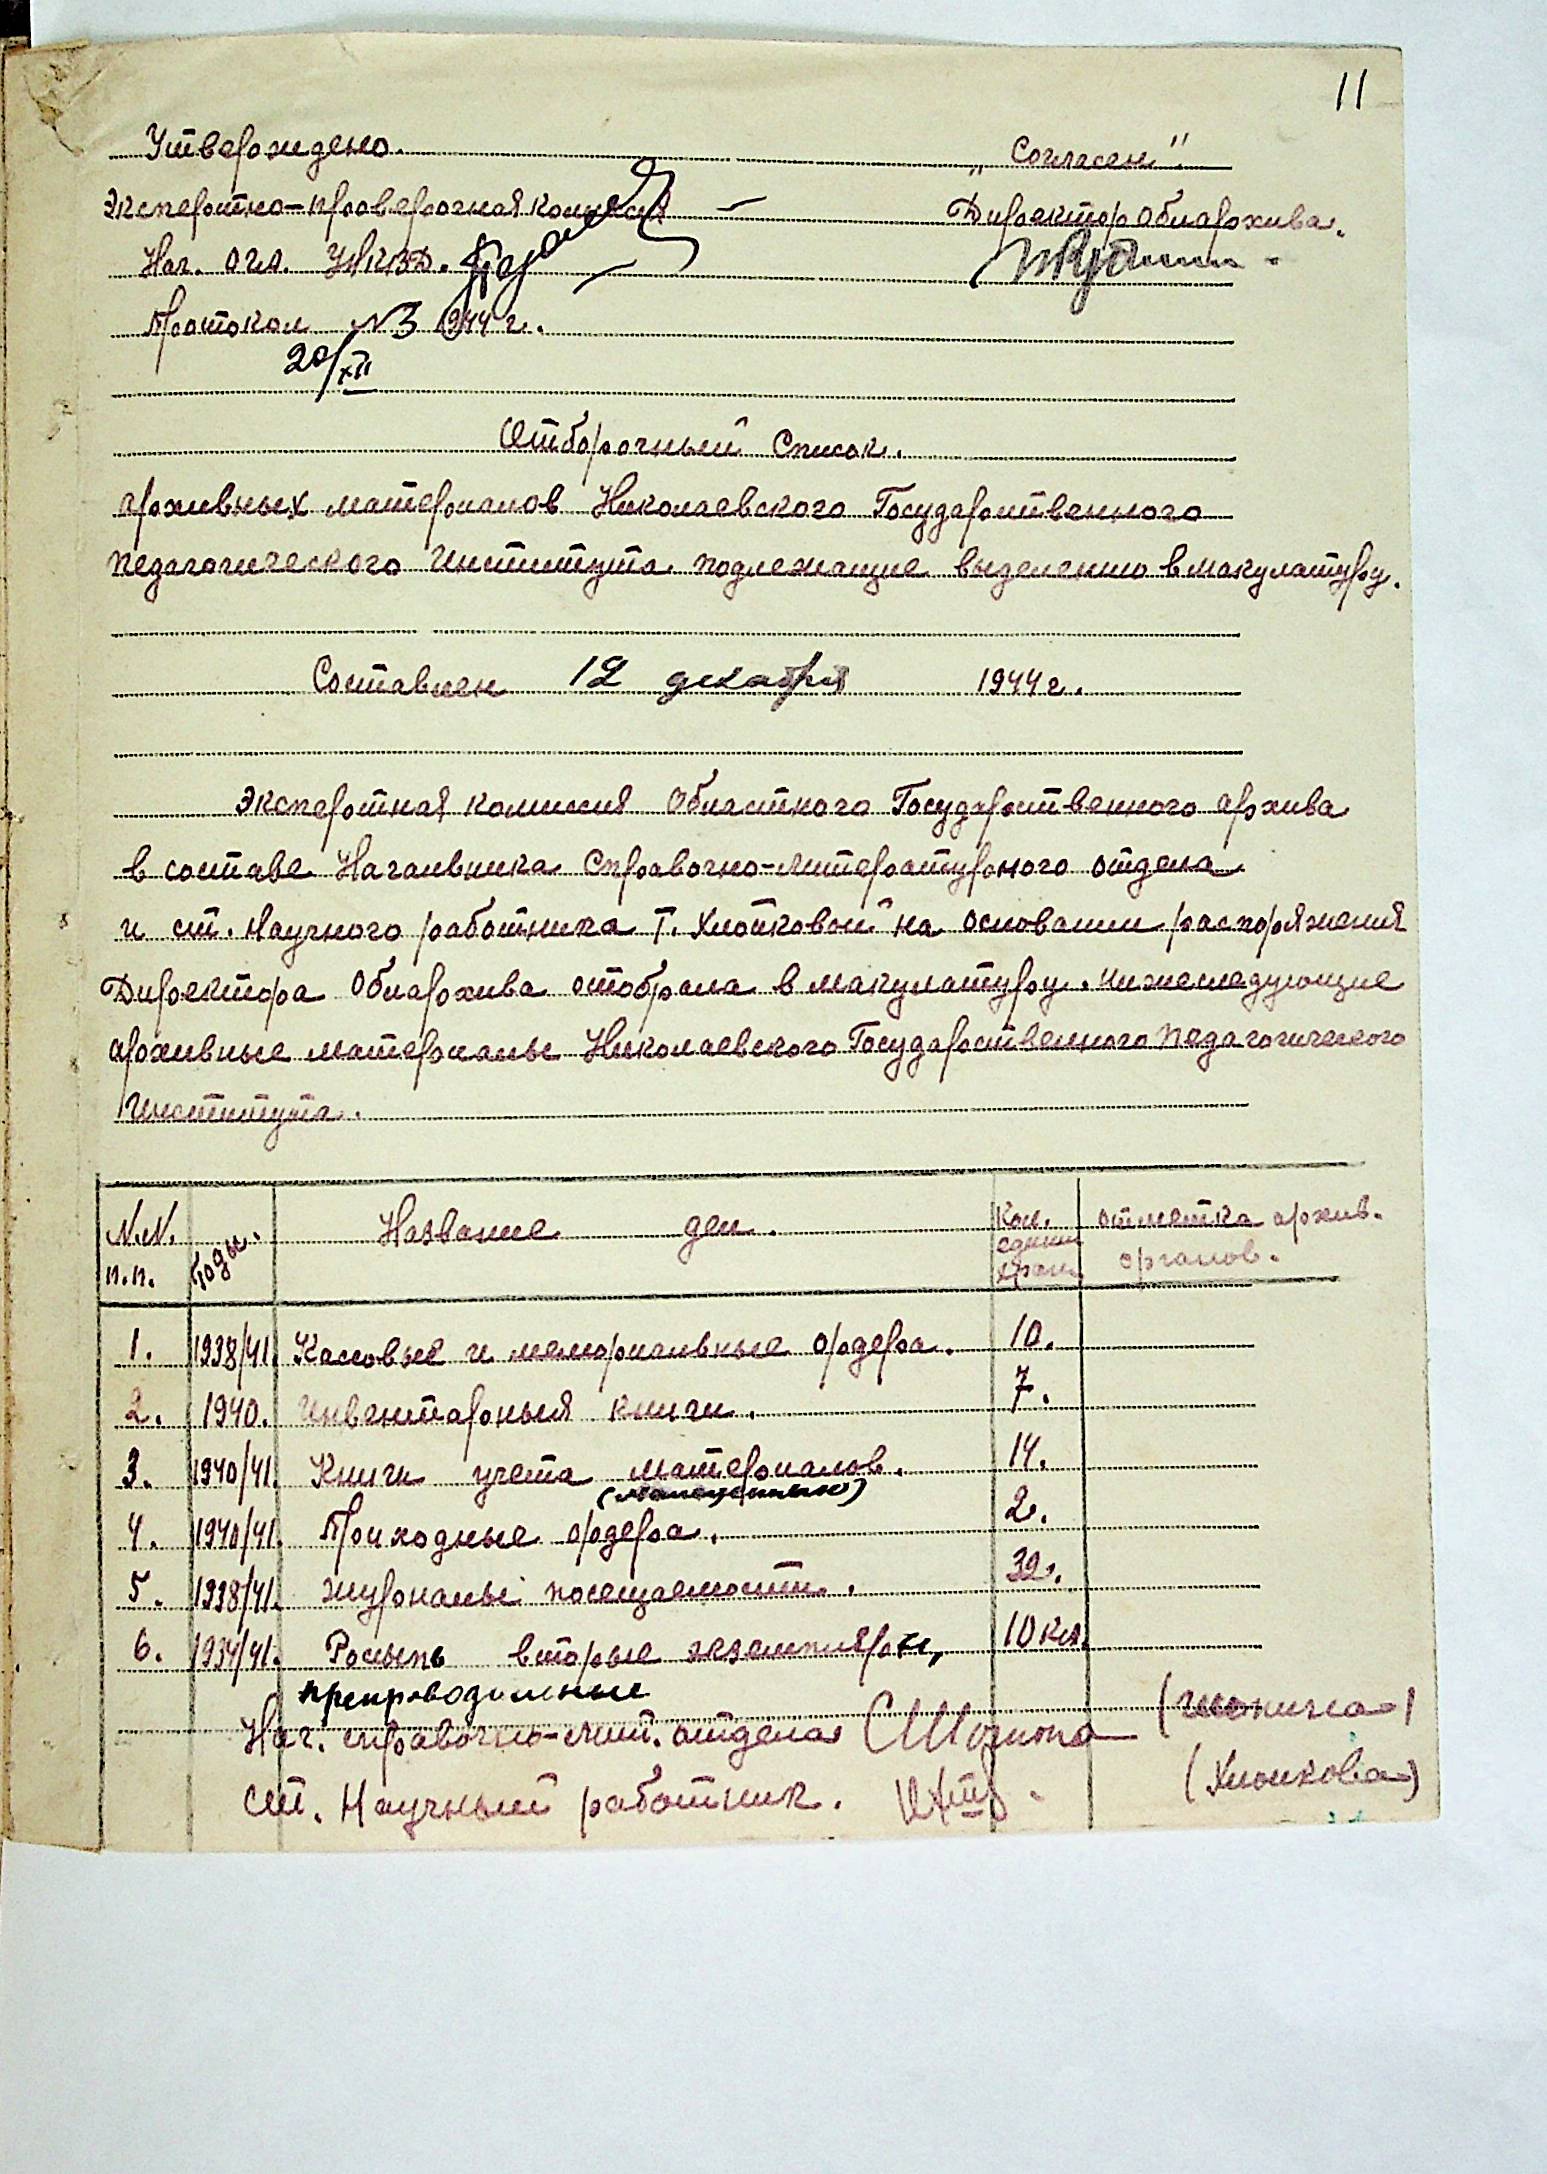 11
Утверждено. „Согласен“.
Экспертно-проверочная комиссия Директор Облархива.
Нач. ОГА. УНКВД.
Протокол №3 1944 г.
20/XII
Отборочный Список.
архивных материалов Николаевского Государственного
Педагогического Института подлежащие выделению в макулатуру.
Составлен 12 декабря 1944 г.
Экспертная комиссия Областного Государственного архива
в составе Начальника Справочно-литературного отдела
и ст. Научного работника Т. Хлопковой на основании распоряжения
Директора Облархива отобрала в макулатуру. нижеследующие
архивные материалы Николаевского Государственного Педагогического
Института.
N.N. п.п. Годы. Название дел. Кол. единиц хран. отметка архив. органов.
1. 1938/41. Кассовые и мемориальные ордера. 10.
2. 1940. Инвентарныя книги. 7.
3. 1940/41. Книги учета материалов. 14.
(малоценных)
4. 1940/41. Приходные ордера. 2.
5. 1938/41. Журналы посещаемости. 32.
6. 1934/41. Россыпь вторые экземпляры, 10 кл.
препроводильные
Нач. справочно-лит. отдела
ст. Научный работник. (Хлопкова)